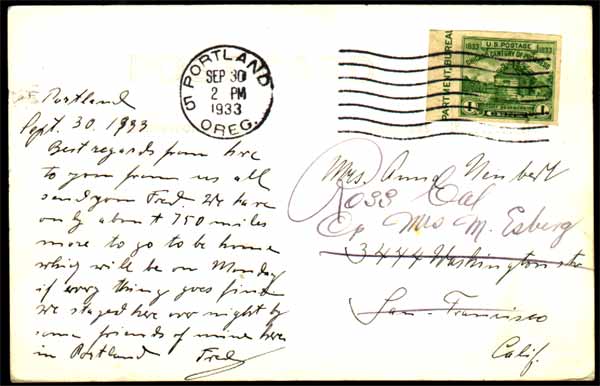 PORTLAND
5
SEP 30
2 PM
1933
OREG.
PARTMENT, BUREAU
U.S. POSTAGE
1833 1933
A CENTURY OF PROGRESS
1
Portland
Sept. 30. 1933
Best regards from here
to you from us all
and your Fred. We have
only about 750 miles
more to go to be home
which will be on Monday
if every thing goes fine
we stayed here over night by
some friends of mine here
in Portland Fred
Mrs. Anna
Ross Cal
Mrs M. Esberg
3444 Washington str
San-Francisco
Calif.